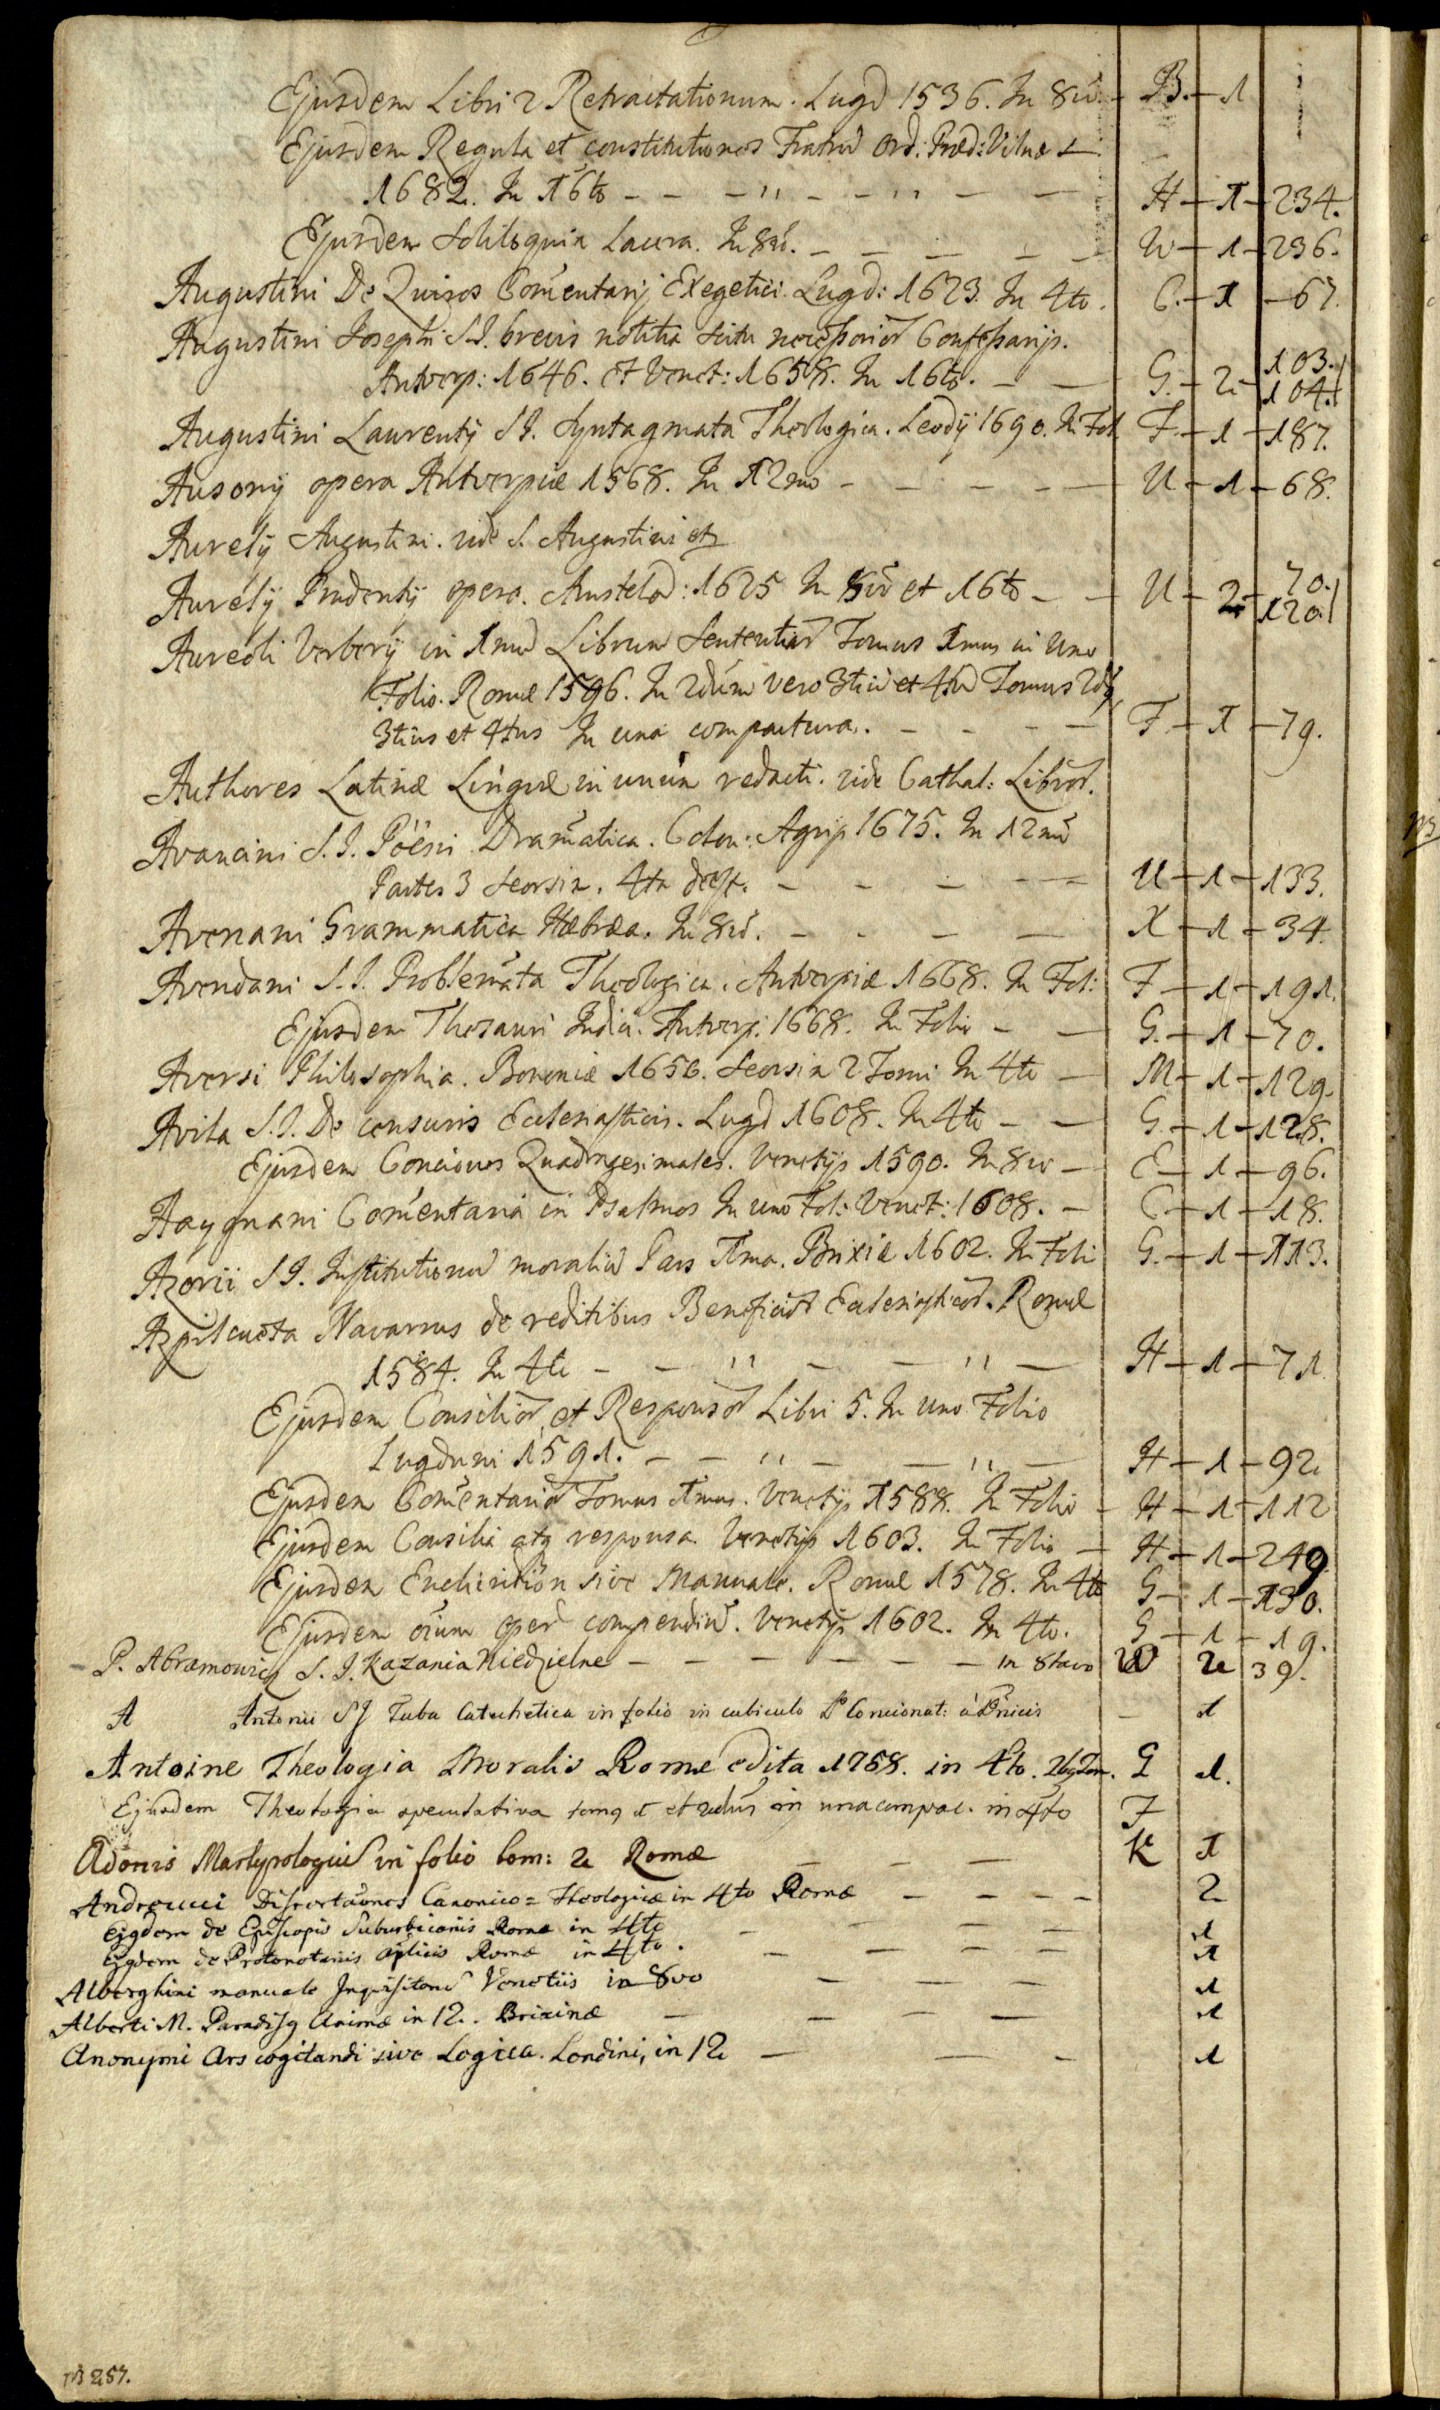 Ejusdem Libri 2 Retractationum. Lugd 1536. In 8vo. – B. – 1
Ejusdem Regula et constitutiones Fratrũ Ord: Præd: Vilnæ
1682. In 16to – – – " – – " – – H – 1 – 234.
Ejusdem Soliloquia Lacera. In 8vo. – – – – – W – 1 – 236.
Augustini De Quiros Com̃entarij Exegetici. Lugd: 1623. In 4to. C. – 1 – 67.
Augustini Josephi S.I. brevis notitia scitu necessarior̃ Confessarijs.
Antverp: 1646. et Venet: 1658. In 16to. – – G. – 2 – 103. 104.
Augustini Laurentij S I. Syntagmata Theologica. Leodij 1690. In Fol F. – 1 – 187.
Ausonij opera Antverpiæ 1568. In 12mo – – – – – U – 1 – 68.
Aurelij Augustini. vide S. Augustini et
Aurelij Prudentij opera. Amstelod: 1625 In 8vo et 16to – – U – 2 – 70. 120.
Aureoli Verberij in 1mũ Librum Sententiar̃ Tomus 1mus in Uno
Folio. Romæ 1596. In 2dum vero 3tiũ et 4tũ Tomus 2dq
3tius et 4tus In una compactura. – – – – F – 1 – 79.
Authores Latinæ Linguæ in unum redacti. vide Cathal: Libror̃.
Avancini S. I. Pöësi Dram̃atica. Colon: Agrip 1675. In 12mo
Partes 3 seorsim. 4ta deest. – – – – U – 1 – 133.
Avenani Grammatica Hæbræa. In 8vo. – – – – X – 1 – 34.
Avendani S. I. Problemãta Theologica. Antverpiæ 1668. In Fol: F – 1 – 191.
Ejusdem Thesauri Indici. Antverp: 1668. In Folio – – G. – 1 – 70.
Aversi Philosophia. Bononiæ 1650. seorsim 2 Tomi In 4to – M – 1 – 129.
Avila S. I. De censuris Ecclesiasticis. Lugd 1608. In 4to – – G. – 1 – 128.
Ejusdem Conciones Quadragesimales. Venetijs 1590. In 8vo – E – 1 – 96.
Aaygnani Com̃entaria in Psalmos In uno Fol: Venet: 1608. – C – 1 – 18.
Azorii S I. Institutionũ moraliũ Pars 1ma. Brixiæ 1602. In Foli G. – 1 – 113.
Azpilcueta Navarrus de reditibus Beneficior̃ Ecclesiasticor̃. Romæ
1584. In 4to – – " – – " – H – 1 – 71.
Ejusdem Consilior̃ et Responsor̃ Libri 5. In uno Folio
Lugduni 1591. – – " – – " – H – 1 – 92
Ejusdem Com̃entarior̃ Tomus 1mus. Venetijs 1588. In Folio – H – 1 – 112
Ejusdem Consilia atq responsa. Venetijs 1603. In Folio – H – 1 – 249.
Ejusdem Enchiridion sive Manuale. Romæ 1578. In 4to G – 1 – 130.
Ejusdem oium operũ compendiũ. Venetijs 1602. In 4to. G – 1 – 19.
– P. Abramowicz S. I. Kazania Niedzielne – – – – – – – in 8tavo W 2 39.
A Antonii S J Tuba Catechetica in folio in cubiculo P Concionat: – 1
Antoine Theologia Moralis Romæ edita 1758. in 4to. G 1.
Ejusdem Theologia speculativa tomq 1 et 2dus in una compac. in 4to F
Adonis Martyrologiũ in folio tom: 2 Romæ – – – K 1
Andreucci Dissertaõnes Canonico = Theologicæ in 4to Romæ – – – – 2
Ejqdem de Episcopis Suburbicariis Romæ in 4to – – – – 1
Ejqdem de Protonotariis aplicis Romæ in 4to. – – – – 1
Alberghini manuale Inquisitorũ Venetiis in 8vo – – – 1
Alberti M. Paradisq Animæ in 12. Brixinæ – – – – 1
Anonymi Ars cogitandi sive Logica. Londini, in 12 – – – 1
B 257.